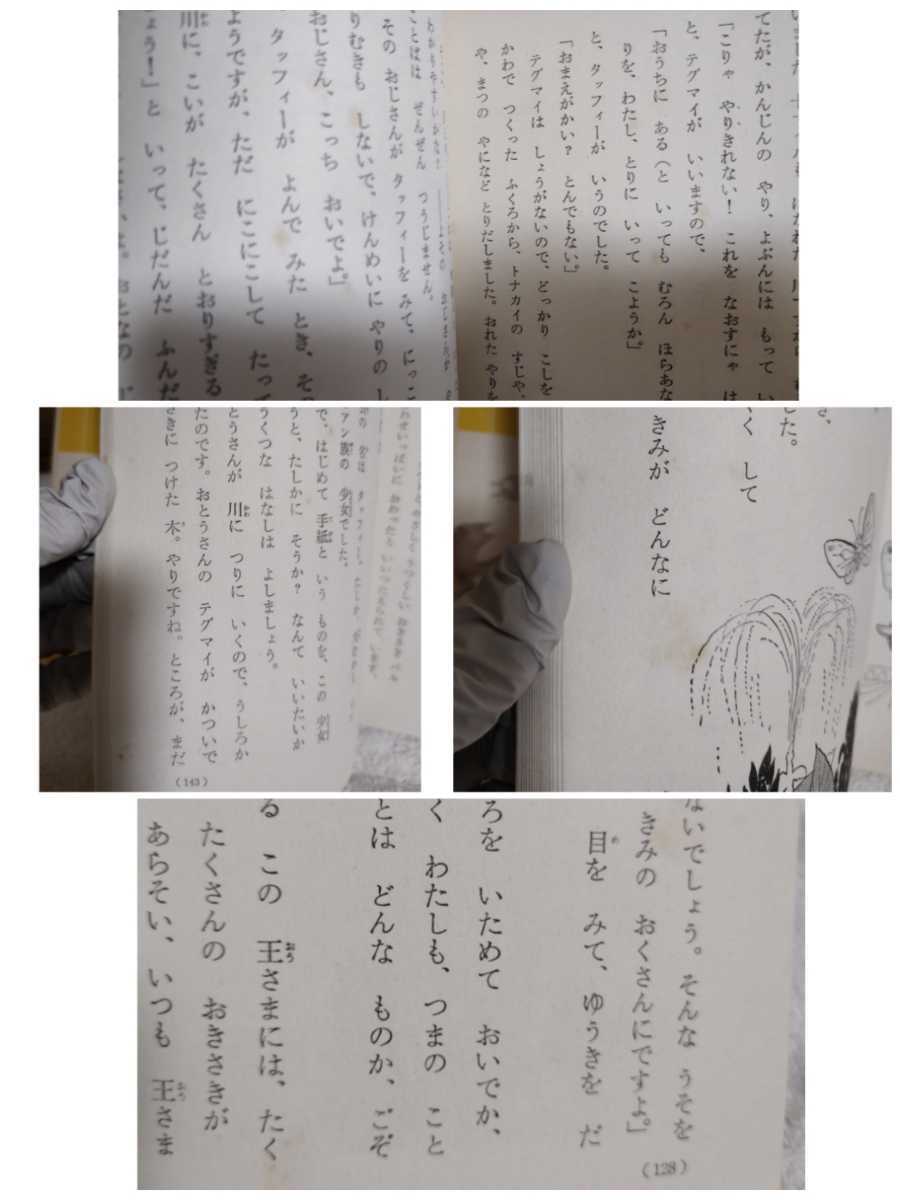 てたが、かんじんの やり、よぶんには もって い
「こりゃ やりきれない! これを なおすにゃ は
と、テグマイが いいますので、
「おうちに ある(と いっても むろん ほらあな
りを、わたし、とりに いって こようか。」
と、タッフィーが いうのでした。
「おまえがかい? とんでもない」。
テグマイは しょうがないので、どっかり こしを
かわで つくった ふくろから、トナカイの すじや、
や、まつの やになど とりだしました。おれた やりを
ことばは ぜんぜん つうじません。
その おじさんが タッフィーを みて、にっこ
りむきも しないで、けんめいに やりの し
おじさん、こっち おいでよ。」
タッフィーが よんで みた とき、そ
ようですが、ただ にこにこして たって
川に、こいが たくさん とおりすぎる
ょう!」と いって、じだんだ ふんだ
ァン族の 少女でした。
で、はじめて 手紙と いう ものを、この 少女
うと、たしかに そうか? なんて いいたいか
うくつな はなしは よしましょう。
とうさんが 川に つりに いくので、うしろか
たのです。おとうさんの テグマイが かついで
さきに つけた 木。やりですね。ところが、まだ
(143)
した。
く して
きみが どんなに
ないでしょう。そんな うそを
きみの おくさんにですよ。」
目を みて、ゆうきを だ
ろを いためて おいでか、
く わたしも、つまの こと
とは どんな ものか、ごぞ
る この 王さまには、たく
たくさんの おきさきが
あらそい、いつも 王さま
(128)